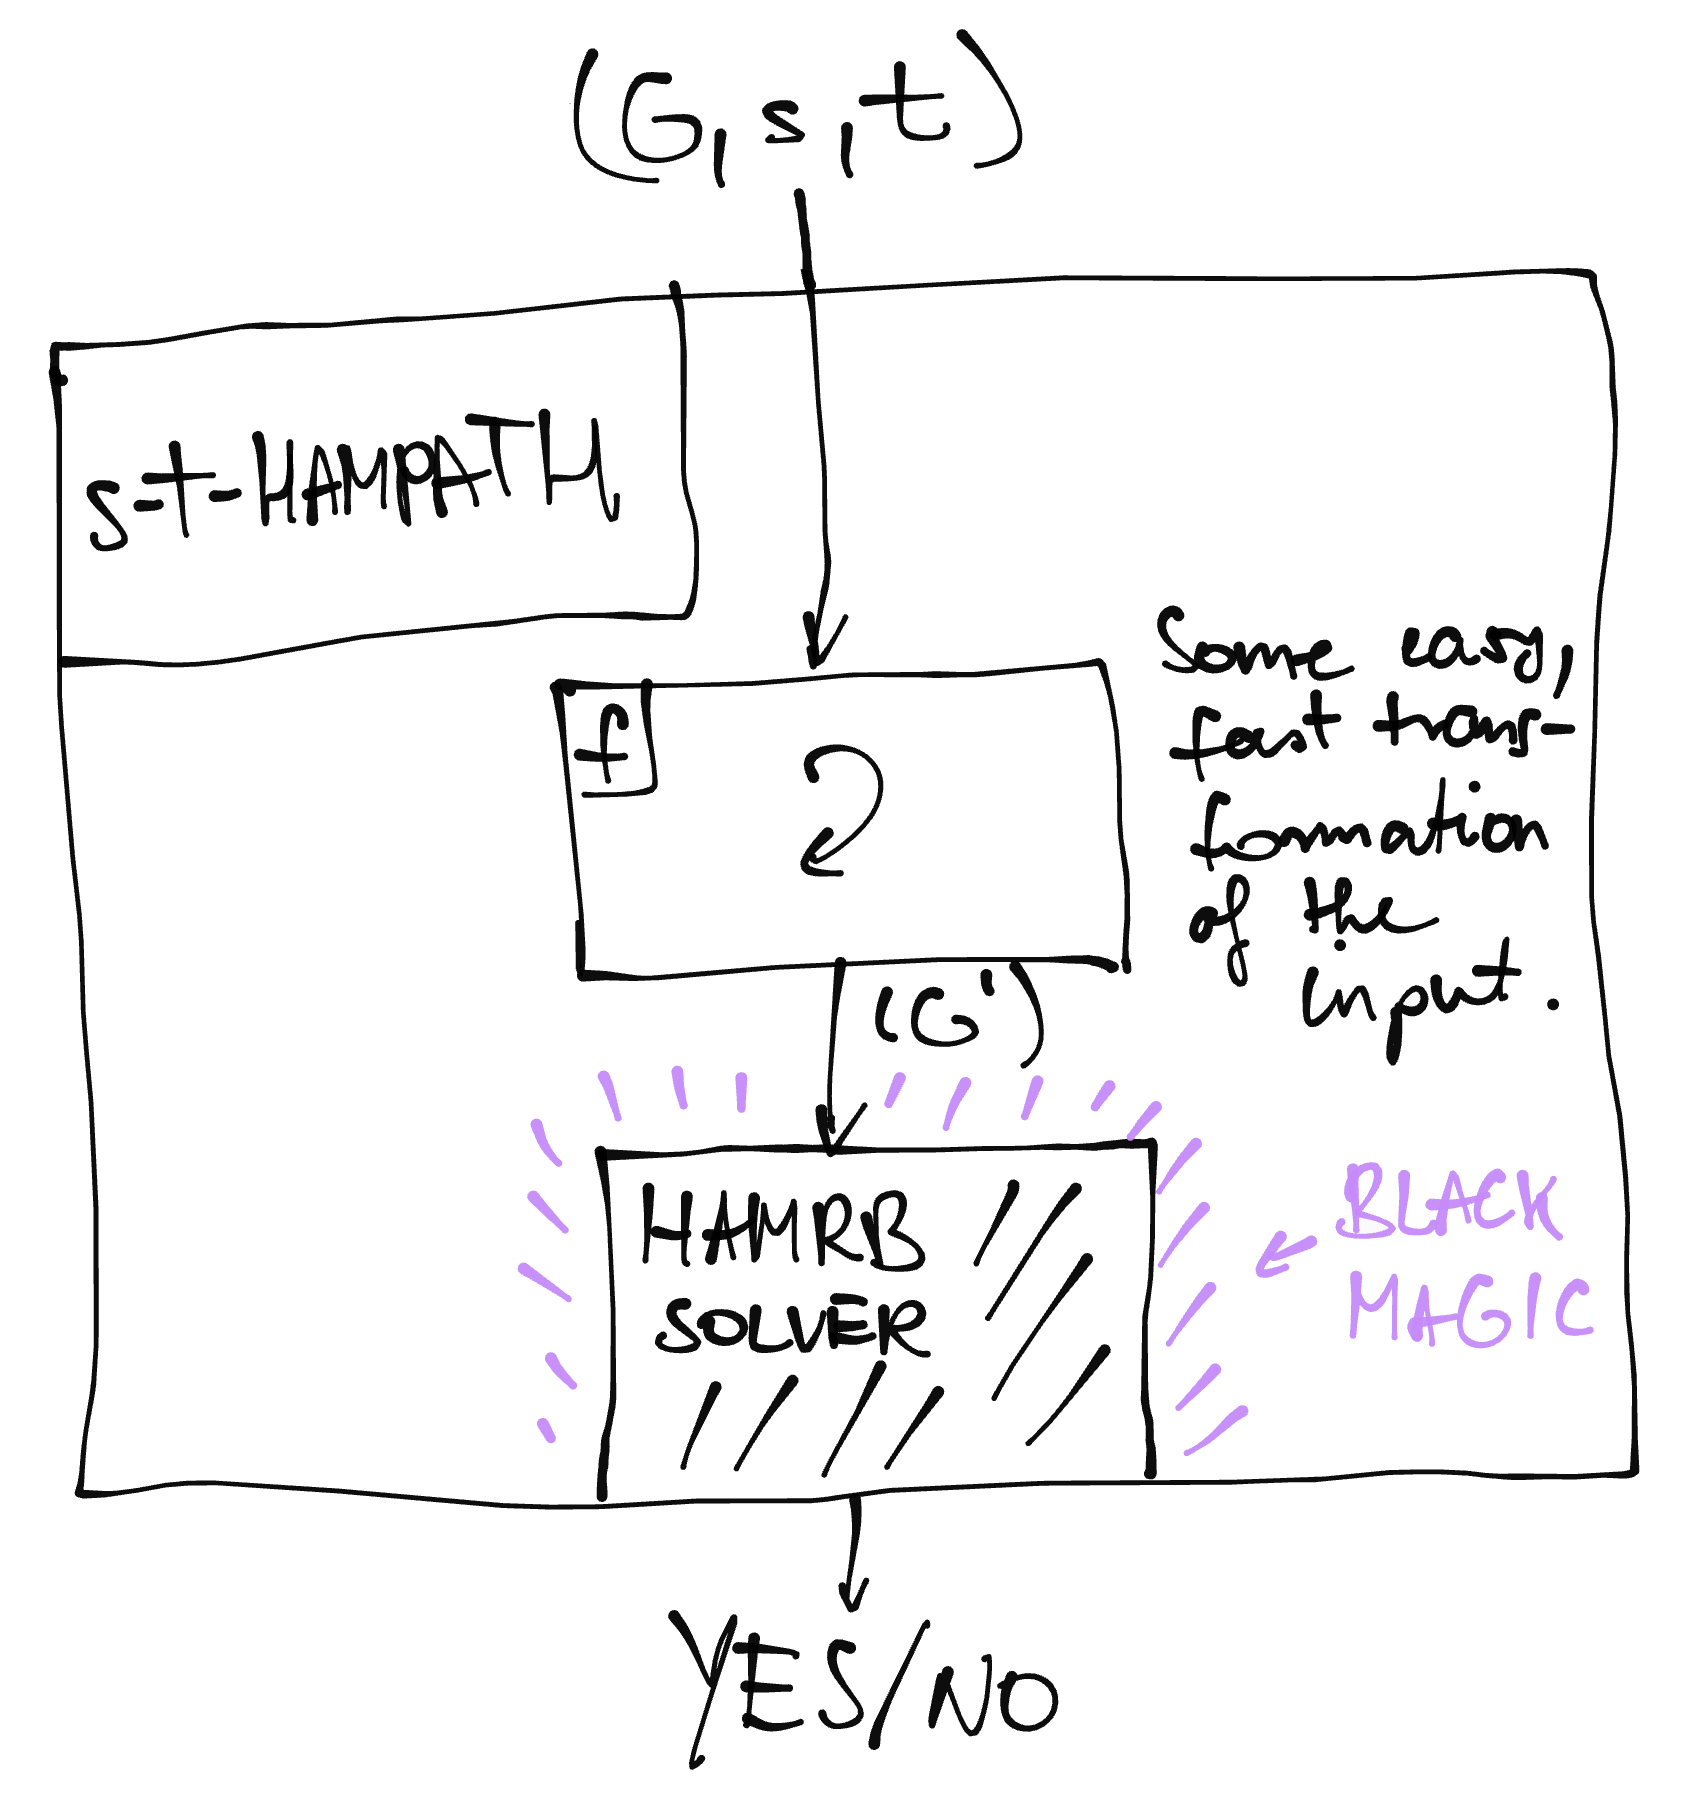 (G, s, t)
s-t-HAMPATH
f
Some easy,
fast trans-
formation
of the
input.
(G')
HAMRB
SOLVER
BLACK
MAGIC
YES/NO